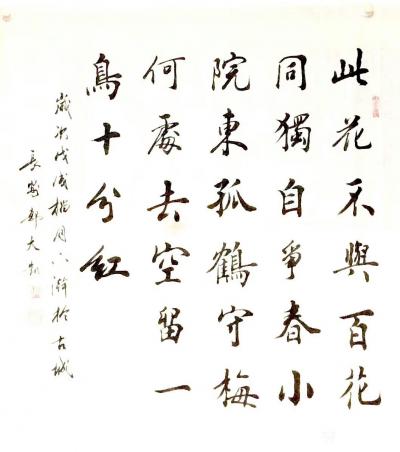 此花不與百花
同獨自爭春小
院東孤鶴守梅
何處去空留一
鳥十分紅
歲次戊戌 月 於古城
長安 大